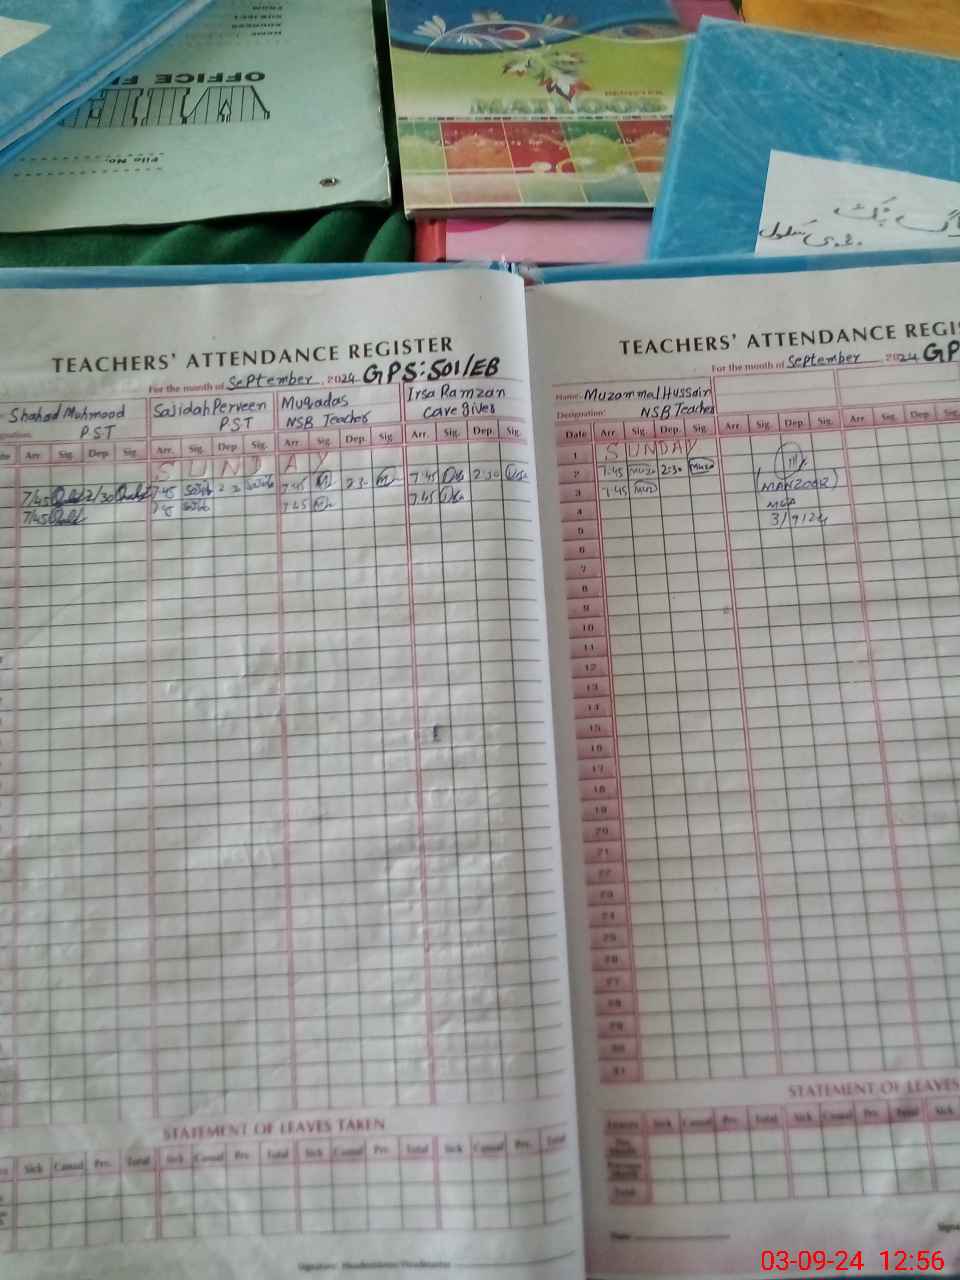 OFFICE FILE
File No.
TEACHERS' ATTENDANCE REGISTER
For the month of September, 2024 GPS:501/EB
Shahad Mahmood
PST
Sajidah Perveen
PST
Muqadas
NSB Teacher
Irsa Ramzan
Care giver
Arr. Sig. Dep. Sig. Arr. Sig. Dep. Sig. Arr. Sig. Dep. Sig. Arr. Sig. Dep. Sig.
SUNDAY
7/45 2/30 7:45 2:30 7:45 2:30 7:45 2:30
7/45 7:45 7:45 7:45
STATEMENT OF LEAVES TAKEN
Sick Casual Prv. Total Sick Casual Prv. Total Sick Casual Prv. Total Sick Casual Prv. Total
Signature Headmistress/Headmaster
TEACHERS' ATTENDANCE REGIS
For the month of September 2024 GP
Name: Muzammal Hussain
Designation: NSB Teacher
Date Arr. Sig. Dep. Sig. Arr. Sig. Dep. Sig. Arr. Sig. Dep. Sig.
1 SUNDAY
2 7:45 Muz 2:30 Muz
3 7:45 Muz
(MANZOOR)
4
3/9/24
5
6
7
8
9
10
11
12
13
14
15
16
17
18
19
20
21
22
23
24
25
26
27
28
29
30
31
STATEMENT OF LEAVES
Leaves Sick Casual Prv. Total Sick Casual Prv. Total Sick
Total
Date
03-09-24 12:56